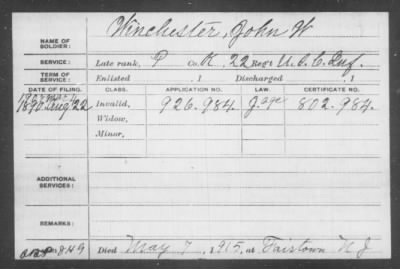 NAME OF SOLDIER: Winchester, John W
SERVICE: Late rank, P Co. K, 22 Reg't U.S.C. Inf.
TERM OF SERVICE: Enlisted , 1 Discharged , 1
DATE OF FILING. CLASS. APPLICATION NO. LAW. CERTIFICATE NO.
1890 Aug 22 Invalid, 926.984 J. age 802.984
Widow,
Minor,
ADDITIONAL SERVICES:
REMARKS:
Died May 7, 1915, at Fairstown N J